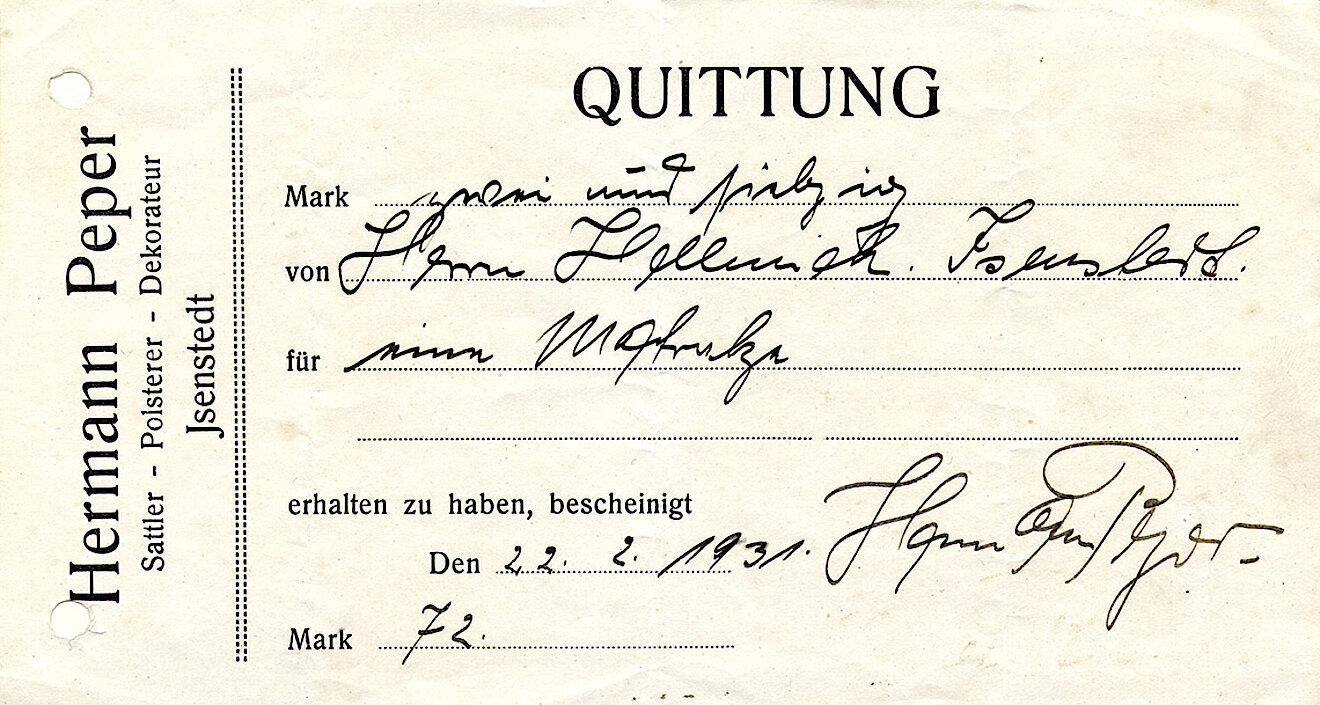 Hermann Peper
Sattler - Polsterer - Dekorateur
Jsenstedt
QUITTUNG
Mark zwei und siebzig
von Herrn Hellmich. Isenstedt.
für eine Matratze
erhalten zu haben, bescheinigt
Den 22. 2. 1931. Hermann Peper.
Mark 72.